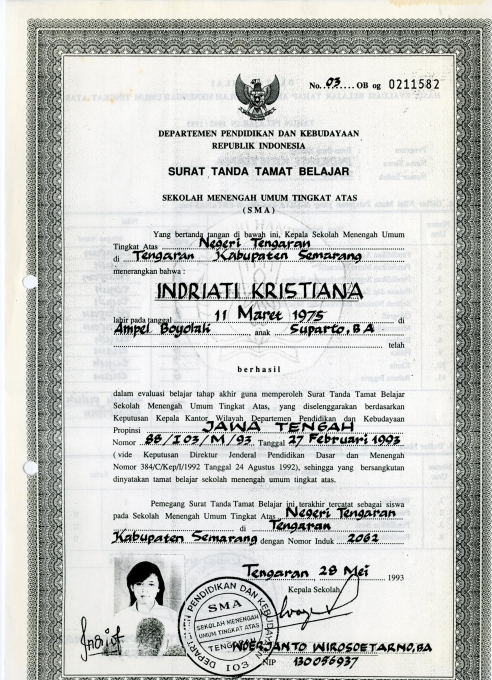 No. 03 .... OB og 0211582
DEPARTEMEN PENDIDIKAN DAN KEBUDAYAAN
REPUBLIK INDONESIA
SURAT TANDA TAMAT BELAJAR
SEKOLAH MENENGAH UMUM TINGKAT ATAS
(SMA)
Yang bertanda tangan di bawah ini, Kepala Sekolah Menengah Umum
Tingkat Atas Negeri Tengaran
di Tengaran Kabupaten Semarang
menerangkan bahwa :
INDRIATI KRISTIANA
lahir pada tanggal 11 Maret 1975 di
Ampel Boyolali anak Suparto, BA
telah
berhasil
dalam evaluasi belajar tahap akhir guna memperoleh Surat Tanda Tamat Belajar
Sekolah Menengah Umum Tingkat Atas, yang diselenggarakan berdasarkan
Keputusan Kepala Kantor Wilayah Departemen Pendidikan dan Kebudayaan
Propinsi JAWA TENGAH
Nomor 88/I03/M/93 Tanggal 27 Februari 1993
( vide Keputusan Direktur Jenderal Pendidikan Dasar dan Menengah
Nomor 384/C/Kep/I/1992 Tanggal 24 Agustus 1992), sehingga yang bersangkutan
dinyatakan tamat belajar sekolah menengah umum tingkat atas.
Pemegang Surat Tanda Tamat Belajar ini terakhir tercatat sebagai siswa
pada Sekolah Menengah Umum Tingkat Atas Negeri Tengaran
di Tengaran
Kabupaten Semarang dengan Nomor Induk 2062
Tengaran, 29 Mei 1993
Kepala Sekolah
DEPARTEMEN PENDIDIKAN DAN KEBUDAYAAN
SMA
SEKOLAH MENENGAH
UMUM TINGKAT ATAS
TENGARAN
I03
NOERJANTO WIROSOETARNO, BA
NIP 130056937